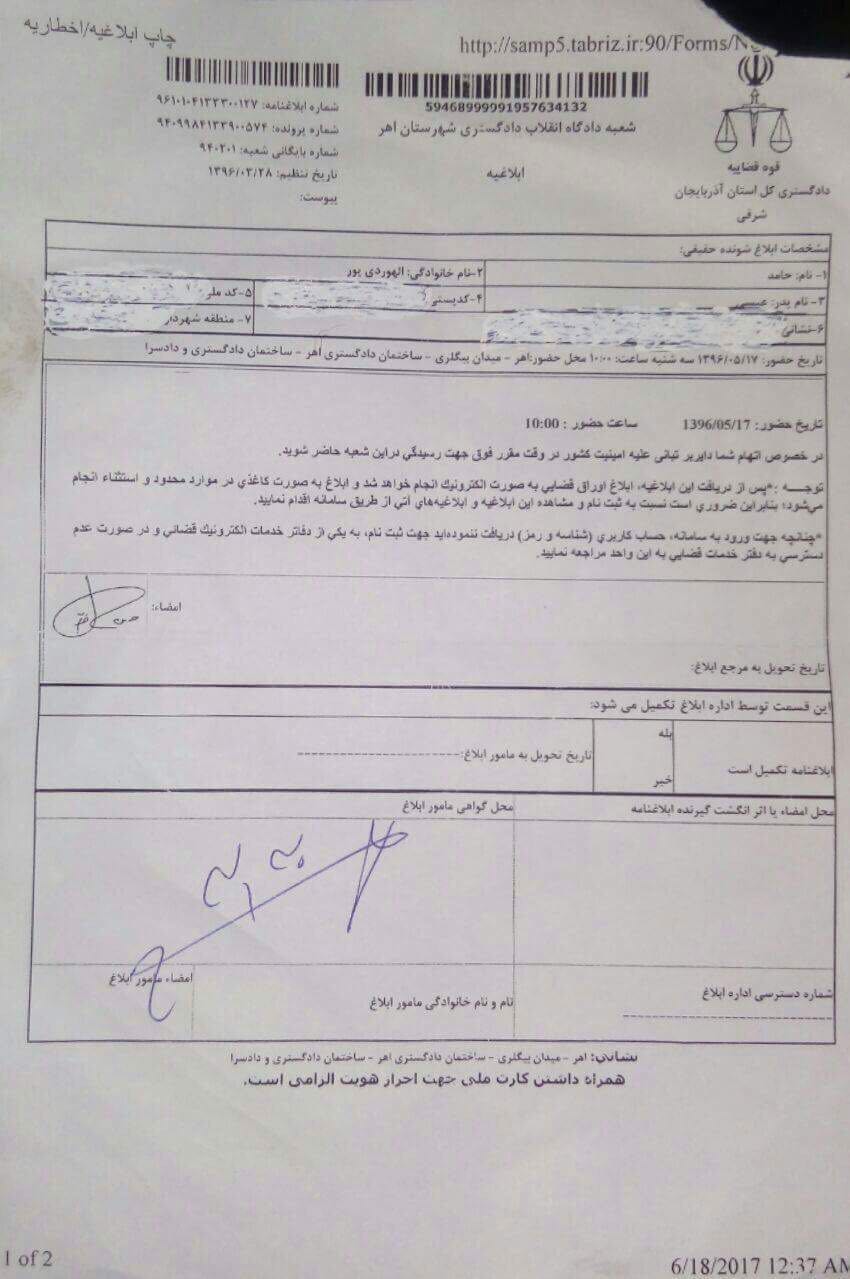 چاپ ابلاغیه/اخطاریه
http://samp5.tabriz.ir:90/Forms/
59468999991957634132
شعبه دادگاه انقلاب دادگستری شهرستان اهر
ابلاغیه
قوه قضاییه
دادگستری کل استان آذربایجان
شرقی
شماره ابلاغنامه: ۹۶۱۰۱۰۴۱۳۳۳۰۰۱۲۷
شماره پرونده: ۹۴۰۹۹۸۴۱۳۳۹۰۰۵۷۴
شماره بایگانی شعبه: ۹۴۰۲۰۱
تاریخ تنظیم: ۱۳۹۶/۰۳/۲۸
پیوست:
مشخصات ابلاغ شونده حقیقی:
۱- نام: حامد
۲-نام خانوادگی: الهوردی پور
۳- نام پدر: عیسی
۴-کدپستی
۵-کد ملی
۶-نشانی
۷- منطقه شهرداری
تاریخ حضور: ۱۳۹۶/۰۵/۱۷ سه شنبه ساعت: ۱۰:۰۰ محل حضور:اهر - میدان بیگلری - ساختمان دادگستری اهر - ساختمان دادگستری و دادسرا
تاریخ حضور: 1396/05/17 ساعت حضور : 10:00
در خصوص اتهام شما دایربر تبانی علیه امنیت کشور در وقت مقرر فوق جهت رسیدگی دراین شعبه حاضر شوید.
توجــــه :*پس از دریافت این ابلاغیه، ابلاغ اوراق قضایی به صورت الکترونیک انجام خواهد شد و ابلاغ به صورت کاغذی در موارد محدود و استثناء انجام
می‌شود؛ بنابراین ضروری است نسبت به ثبت نام و مشاهده این ابلاغیه و ابلاغیه‌های آتی از طریق سامانه اقدام نمایید.
*چنانچه جهت ورود به سامانه، حساب کاربری (شناسه و رمز) دریافت ننموده‌اید جهت ثبت نام، به یکی از دفاتر خدمات الکترونیک قضائی و در صورت عدم
دسترسی به دفتر خدمات قضایی به این واحد مراجعه نمایید.
امضاء:
تاریخ تحویل به مرجع ابلاغ:
این قسمت توسط اداره ابلاغ تکمیل می شود:
ابلاغنامه تکمیل است
بله
خیر
تاریخ تحویل به مامور ابلاغ:--------------------
محل امضاء یا اثر انگشت گیرنده ابلاغنامه
محل گواهی مامور ابلاغ
شماره دسترسی اداره ابلاغ
--------------------
نام و نام خانوادگی مامور ابلاغ
امضاء مامور ابلاغ
نشانی: اهر -میدان بیگلری - ساختمان دادگستری اهر - ساختمان دادگستری و دادسرا
همراه داشتن کارت ملی جهت احراز هویت الزامی است.
1 of 2
6/18/2017 12:37 AM